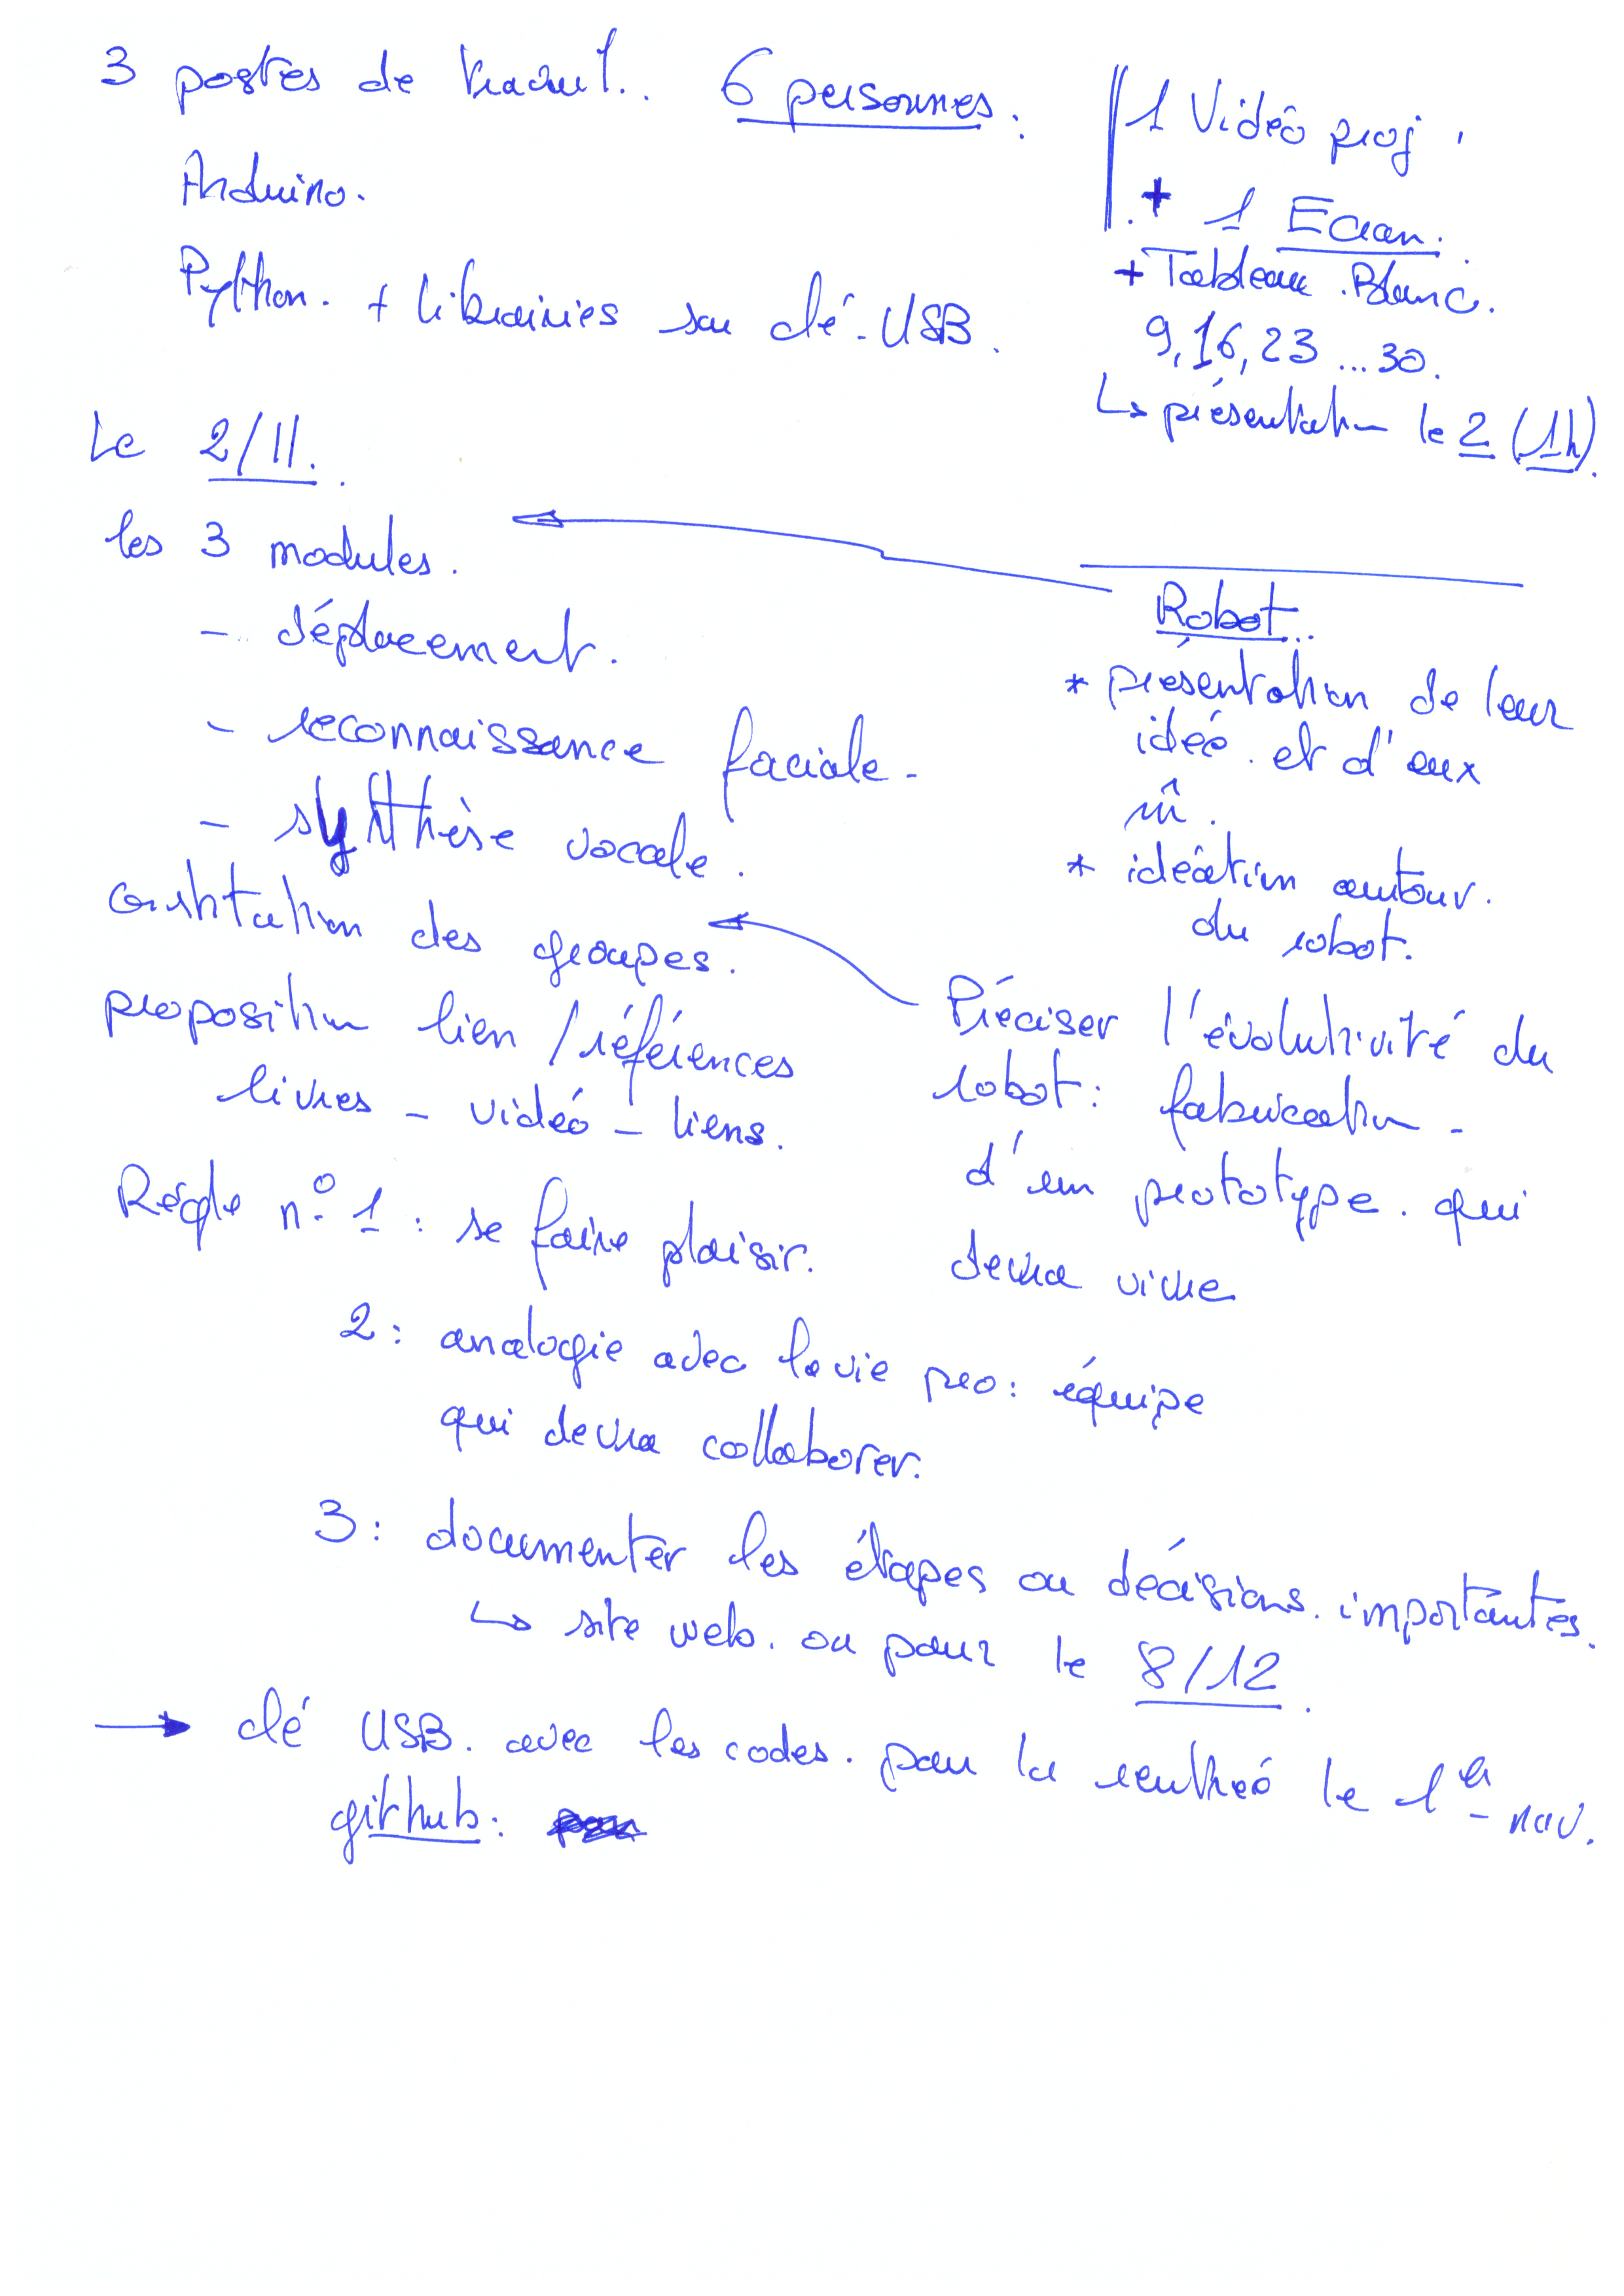 3 postes de travail.. 6 personnes :
Arduino.
Python. + librairies sur clé-USB.
1 Vidéo proj.
+ 1 Ecran.
+ Tableau Blanc.
9, 16, 23 ... 30.
↳ présentation le 2 (1h).
Le 2/11.
les 3 modules.
- déplacement.
- reconnaissance faciale.
- synthèse vocale.
Robot..
* présentation de leur
idée. et d'eux
m̂.
* idéation autour.
du robot.
constitution des groupes.
proposition lien / références
livres - vidéo - liens.
Préciser l'évolutivité du
robot : fabrication -
d'un prototype. qui
devra vivre
Règle n° 1 : se faire plaisir.
2 : analogie avec la vie pro : équipe
qui devra collaborer.
3 : documenter les étapes ou décisions. importantes.
↳ site web. ou pour le 8/12.
→ clé USB. avec les codes. pour la rentrée le 1er nov.
github :